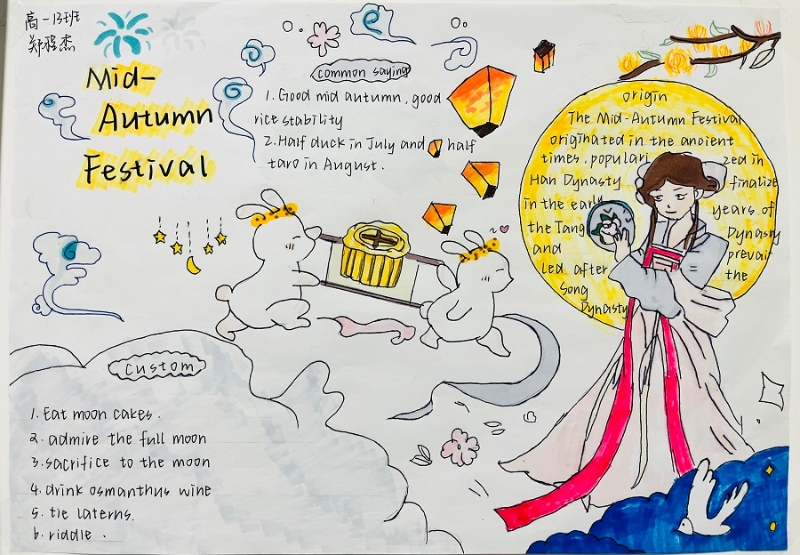 高一13班
Mid-
Autumn
Festival
common saying
1. Good mid autumn, good
rice stability
2. Half duck in July and half
taro in August.
origin
The Mid-Autumn Festival
originated in the ancient
times, populari zed in
Han Dynasty finalize
in the early years of
the Tang Dynasty
and prevai
led after the
Song
Dynasty
Custom
1. Eat moon cakes.
2. admire the full moon
3. sacrifice to the moon
4. drink osmanthus wine
5. tie laterns.
6. riddle.